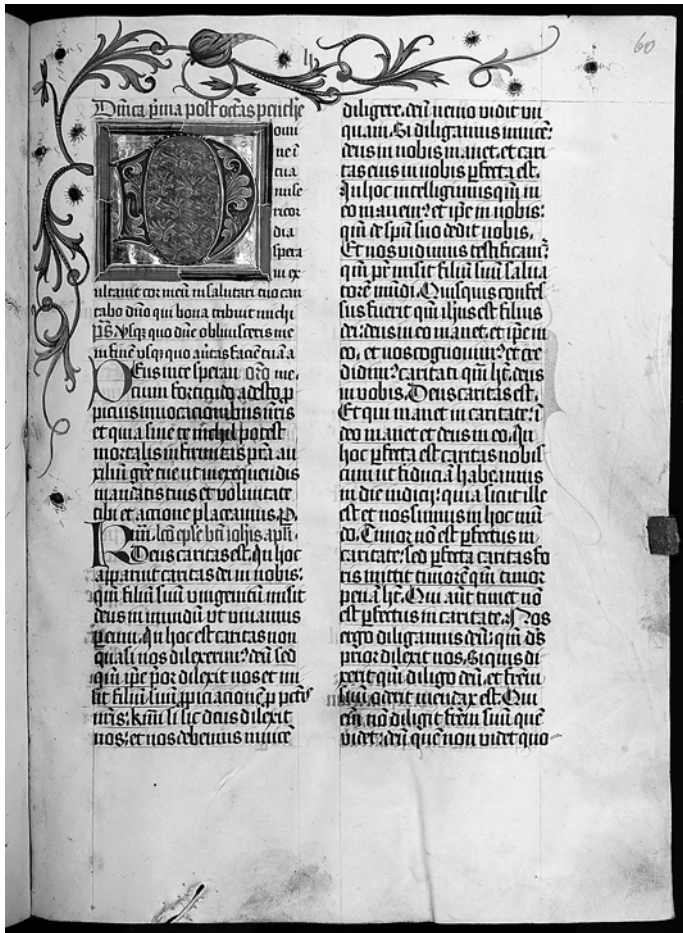 60
Dnica pma post octas penthe
D omi
ne ĩ
tua
mise
ricor
dia
spera
ui ex
ultauit cor meũ in salutari tuo can
tabo dño qui bona tribuit michi
p̃s Vsq̨ quo dñe obliuisceris me
in finẽ vsq̨ quo auertis faciẽ tuã a
Deus in te speranc̃ orõ me.
cium fortitudo adesto p
picius inuocacionibus nr̃is
et quia sine te nichil potest
mortalis infirmitas pr̃ta au
xiliũ gr̃e tue ut in exequendis
mandatis tuis et voluntate
tibi et accione placeamus. P.
Kr̃mi. lcõ ep̃le bti ioh̃is apl̃i.
Deus caritas est. In hoc
apparuit caritas dei in nobis:
qm̃ filiũ suũ vnigenitũ misit
deus in mundũ vt viuamus
p eum. In hoc est caritas non
quasi nos dilexerim9 deũ sed
qm̃ ip̃e por dilexit nos et mi
sit filiũ suũ ppiciacionẽ p pctĩs
nr̃is. kr̃mi si sic deus dilexit
nos: et nos debemus inuicẽ
diligere. deũ nemo vidit vn
quam. Si diligamus inuicẽ:
deus in nobis manet. et cari
tas eius in nobis pfecta est.
In hoc intelligimus qm̃ in
eo manem9 et ip̃e in nobis:
qm̃ de sp̃u suo dedit nobis.
Et nos vidimus testificam9
qm̃ pr̃ misit filiũ suũ salua
torẽ mũdi. Quisquis confes
sus fuerit qm̃ ih̃us est filius
dei: deus in eo manet. et ip̃e in
eo. et nos cognouim9 et cre
didim9 caritati qm̃ hẽt deus
in vobis. Deus caritas est.
Et qui manet in caritate: ĩ
deo manet et deus in eo. In
hoc pfecta est caritas nobis
cum ut fiduciã habeamus
in die iudicij: quia sicut ille
est et nos sumus in hoc mũ
do. Timor nõ est pfectus in
caritate: sed pfecta caritas fo
ris mittit timorẽ qm̃ timor
penã hẽt. Qui aũt timet nõ
est pfectus in caritate. Nos
ergo diligamus deũ: qm̃ ds̃
prior dilexit nos. Si quis di
xerit qm̃ diligo deũ. et frẽm
suũ oderit mendax est. Qui
em̃ nõ diligit frẽm suũ quẽ
videt: deũ quẽ non videt quo